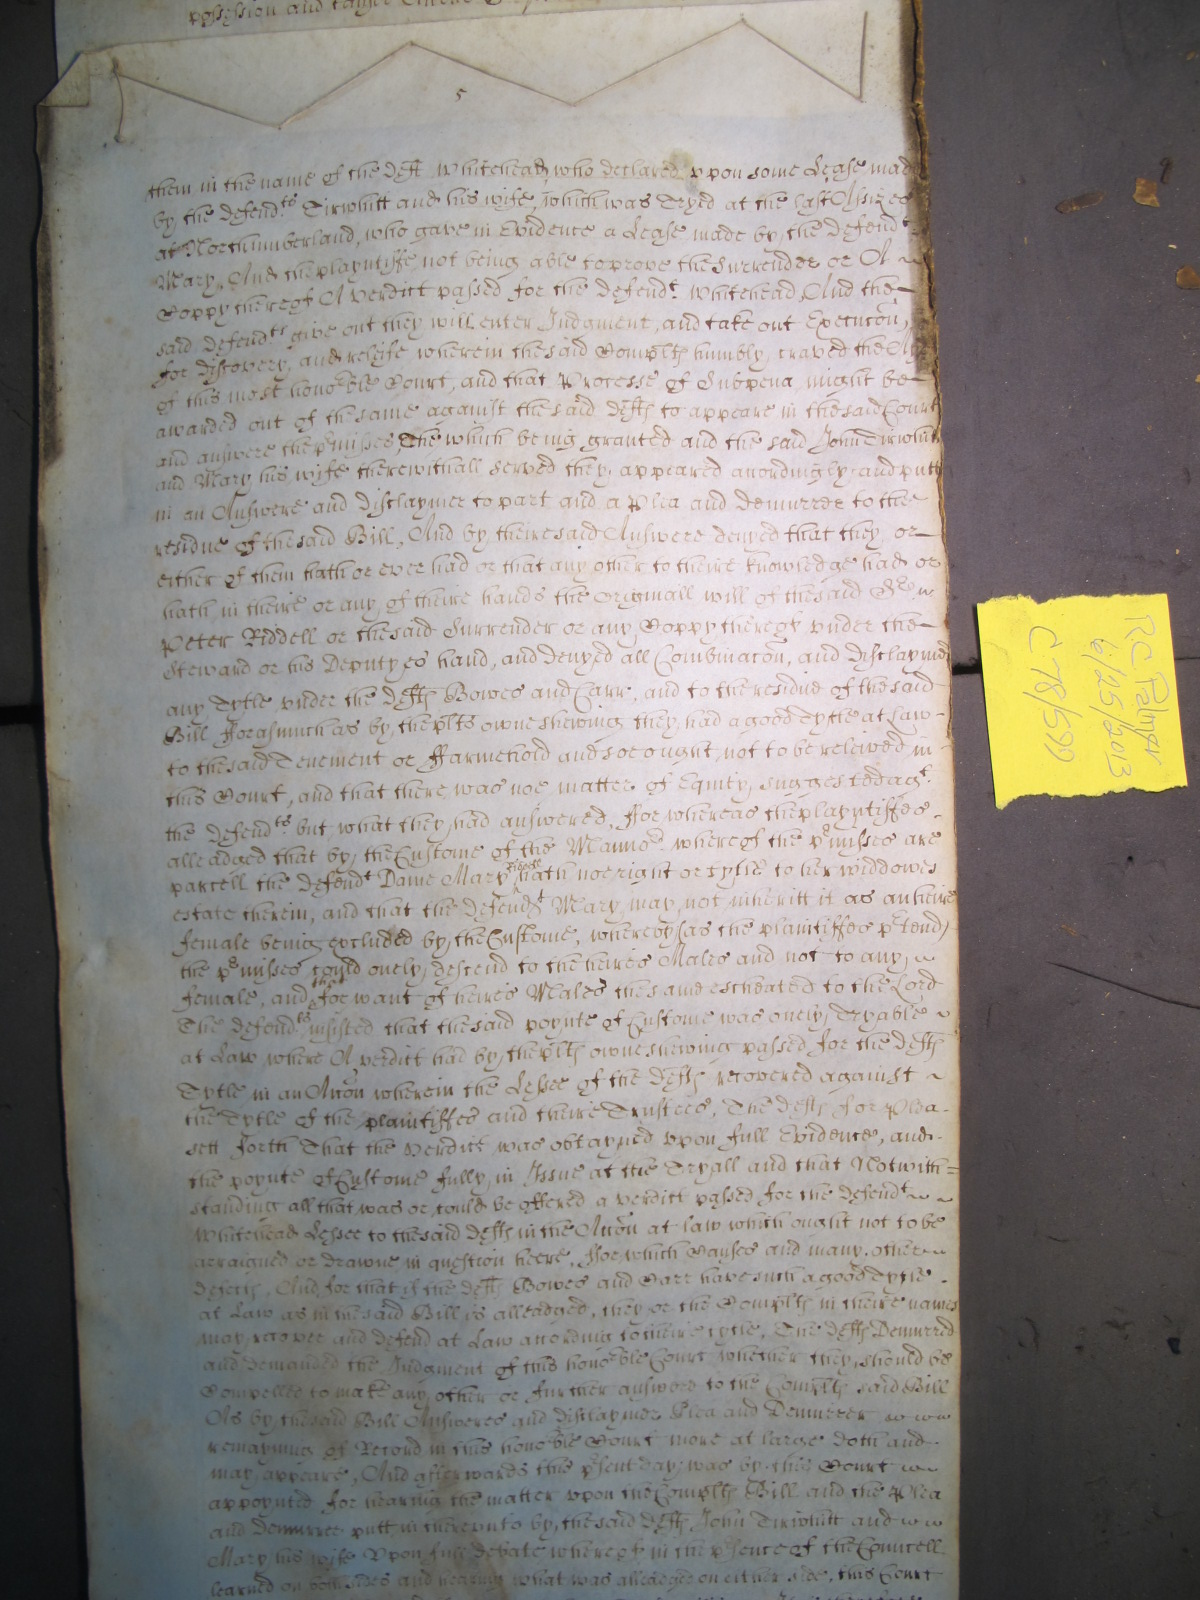 possession and
5
them in the name of the Deft Whitehead, who declared vpon some Lease made
by the defendts Tirwhitt and his wife, which was Tryed at the last Assizes
at Northumberland, who gave in Evidence a Lease made by the defendt
Mary, And the playntiffe not being able to prove the Surrender or A
Coppy thereof A verdict passed for the defendt Whitehead, And the
said defendts give out they will enter Judgment, and take out Execucõn,
for discovery, and releife wherein the said Complts humbly craved the
of this most honoble Court, and that Processe of Subpena might be
awarded out of the same against the said defts to appeare in the said Court
and answere the prmisses, The which being granted and the said John Tirwhitt
and Mary his wife therewithall served they appeared accordingly and putt
in an Answere and disclaymer to part and a Plea and demurrer to the
residue of the said Bill, And by theire said Answere denyed that they or
either of them hath or ever had or that any other to theire knowledge had or
hath in theire or any of theire hands the Originall will of the said Sr
Peter Riddell or the said Surrender or any Coppy thereof vnder the
Steward or his Deputyes hand, and denyed all Combinacõn, and disclaymed
any Tytle vnder the Defts Bowes and Carr, and to the residue of the said
Bill Forasmuch as by the plts owne shewing they had a good Tytle at Law
to the said Tenement or Farmehold and soe ought not to be releived in
this Court, and that there was noe matter of Equity suggested agt
the defendts but what they had answered, For whereas the playntiffes
alleadged that by the Custome of the Mannor whereof the prmisses are
parcell the defendt Dame Mary Riddell hath noe right or tytle to her widdowes
estate therein, and that the defendt Mary may not inheritt it as an heire
female being excluded by the Custome, whereby (as the plaintiffes prtend)
the prmisses could onely descend to the heires Males and not to any
female, and that for want of heires Males the same escheated to the Lord
The defendts insisted that the said poynte of Custome was onely Tryable
at Law where A verdict had by the plts owne shewing passed for the defts
Tytle in an Accõn wherein the Lessee of the defts recovered against
the Tytle of the plaintiffes and theire Trustees, The defts for Plea
sett forth That the verdict was obtayned vpon full Evidence, and
the poynte of Custome fully in Issue at the Tryall and that Notwith=
standing all that was or could be offered a verdict passed for the defendt
Whitehead Lessee to the said defts in the Accõn at law which ought not to be
arraigned or drawne in question heere, For which Causes and many other
defects, And for that if the defts Bowes and Carr have such a good Tytle
at Law as in the said Bill is alleadged, they or the Complts in theire names
may recover and defend at Law according to theire tytle, The defts Demurred
and demanded the Judgment of this honoble Court whether they should be
Compelled to make any other or further answere to the Complts said Bill
As by the said Bill Answeres and disclaymer Plea and Demurrer
remayning of Record in this honoble Court more at large doth and
may appeare, And afterwards this prsent day was by this Court
appoynted for hearing the matter vpon the Complts Bill and the Plea
and demurrer putt in therevnto by the said defts John Tirwhitt and
Mary his wife Vpon full debate whereof in the prsence of the Councell
learned on both sides and hearing what was alleadged on either side, this Court
RC Palmer
6/25/2013
C78/599